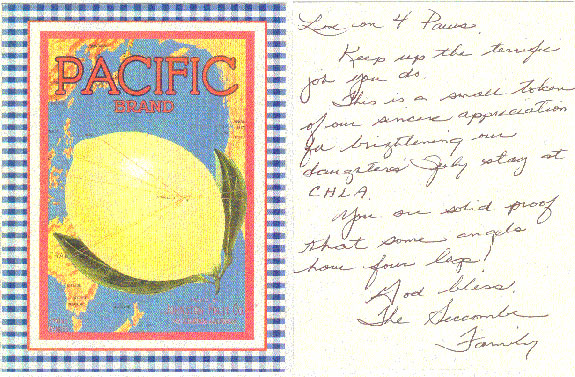 PACIFIC
BRAND
Love on 4 Paws.
Keep up the terrific
job you do.
This is a small token
of our sincere appreciation
for brightening our
daughters July stay at
CHLA.
You are solid proof
that some angels
have four legs!
God bless.
The
Family